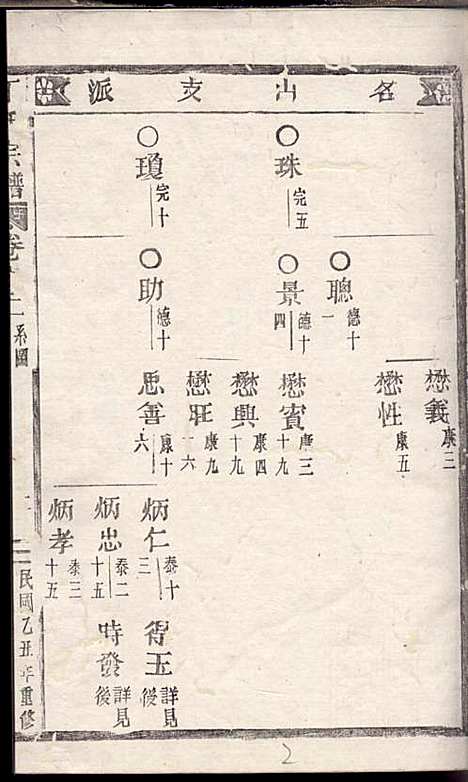 名山支派
懋義 康三
懋性 康五
聰 德十一
珠 完五
景 德十四
懋賓 康三十九
懋興 康四十九
懋旺 康九十六
瓊 完十
助 德十
思善 康十六
炳仁 泰十三
得玉 詳見後
炳忠 泰二十五
時發 詳見後
炳孝 泰三十五
宗譜 卷 系圖
民國乙丑年重修
2